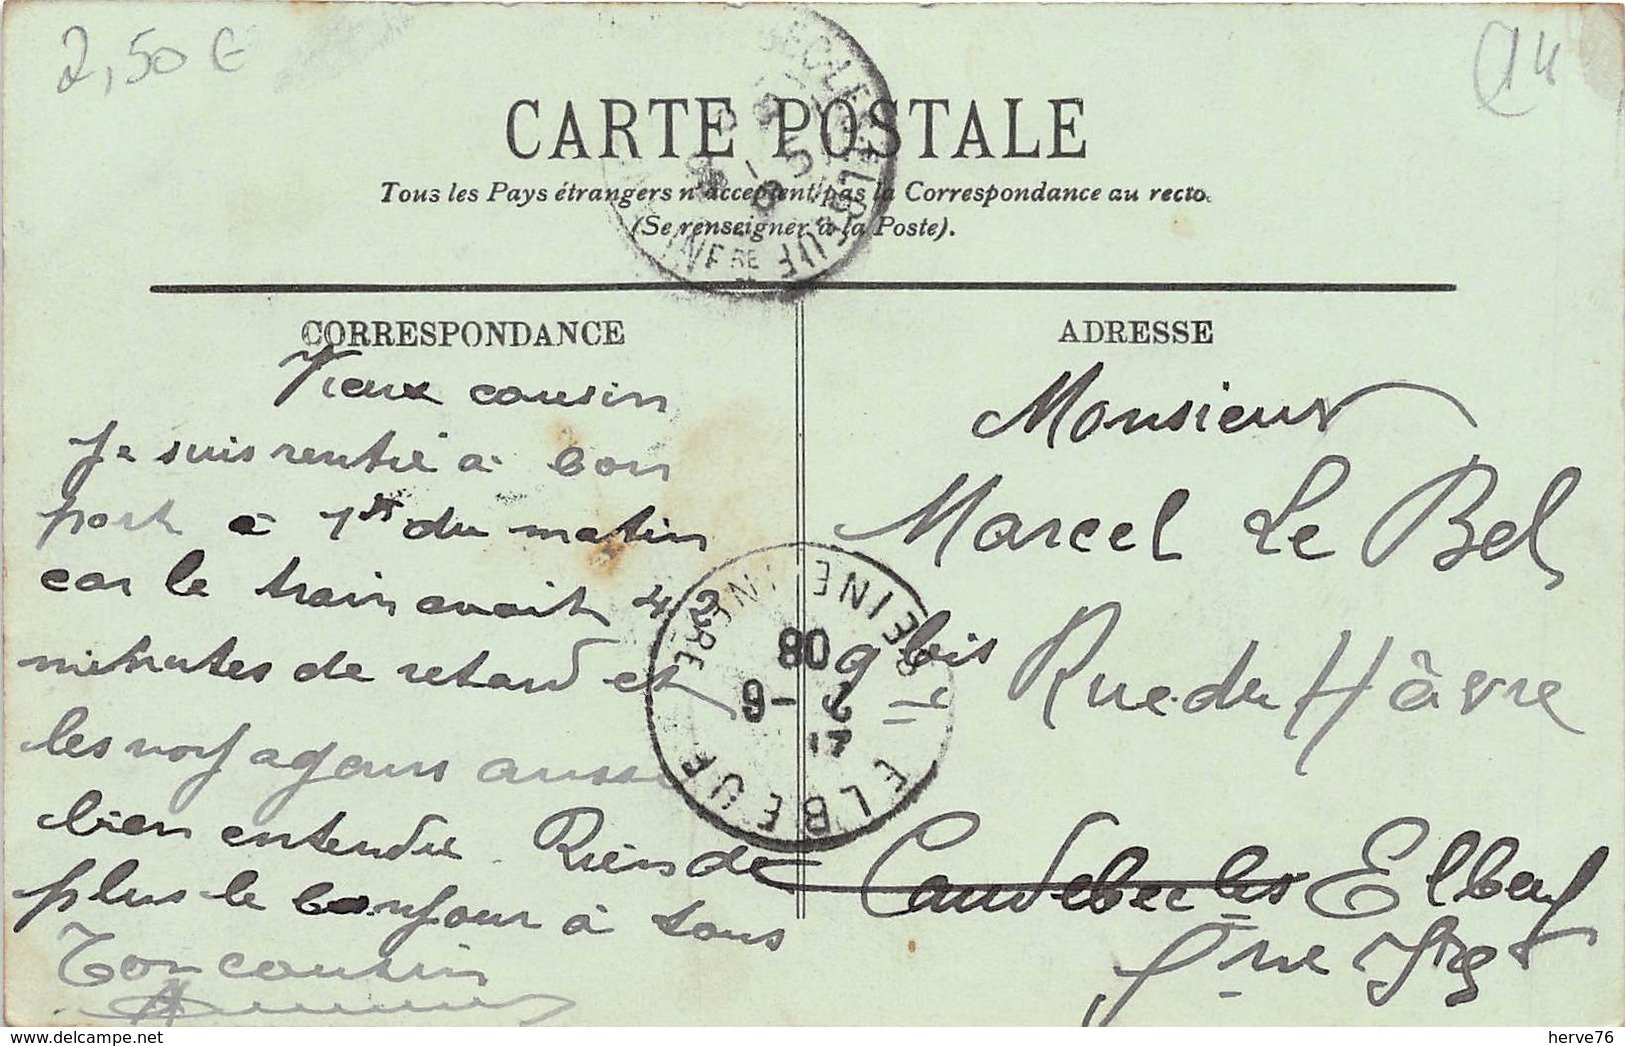 2,50 €
14
CARTE POSTALE
Tous les Pays étrangers n'acceptent pas la Correspondance au recto.
(Se renseigner à la Poste).
CORRESPONDANCE
Vieux cousin
Je suis rentré à bon
port à 1h du matin
car le train avait 42
minutes de retard et
les voyageurs aussi
bien entendu. Rien de
plus le bonjour à tous
Ton cousin
ADRESSE
Monsieur
Marcel Le Bel
9 bis Rue du Hâvre
Caudebec les Elbeuf
Sne Infre
ELBEUF
SEINE INFRE
17
9 - 2
08
herve76